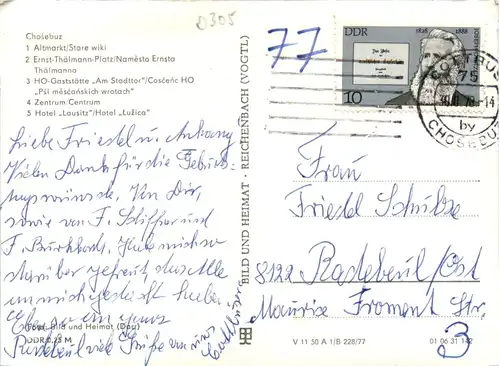 D305
Chośebuz
1 Altmarkt/Stare wiki
2 Ernst-Thälmann-Platz/Naměsto Ernsta
Thälmanna
3 HO-Gaststätte „Am Stadttor"/Cosćeńc HO
„Pśi měsćańskich wrotach"
4 Zentrum/Centrum
5 Hotel „Lausitz"/Hotel „Łužica"
Liebe Friedel u. Anhang
Vielen Dank für die Geburts-
tagswünsche. Von Dir,
sowie von F. Schiffer und
F. Burkhardt. Habe mich so
darüber gefreut, das Alle
an mich gedacht haben.
Foto: Bild und Heimat (Dau)
DDR 0,25 M
Radebeul viele Grüße von
BILD UND HEIMAT · REICHENBACH (VOGTL)
77
DDR
1828
1888
10
COTTBUS
75
-14
by
CHOŚEBUZ
Frau
Friedel Schulze
8122 Radebeul/Ost
Maurice Froment Str.
3
V 11 50 A 1/B 228/77
01 06 31 142